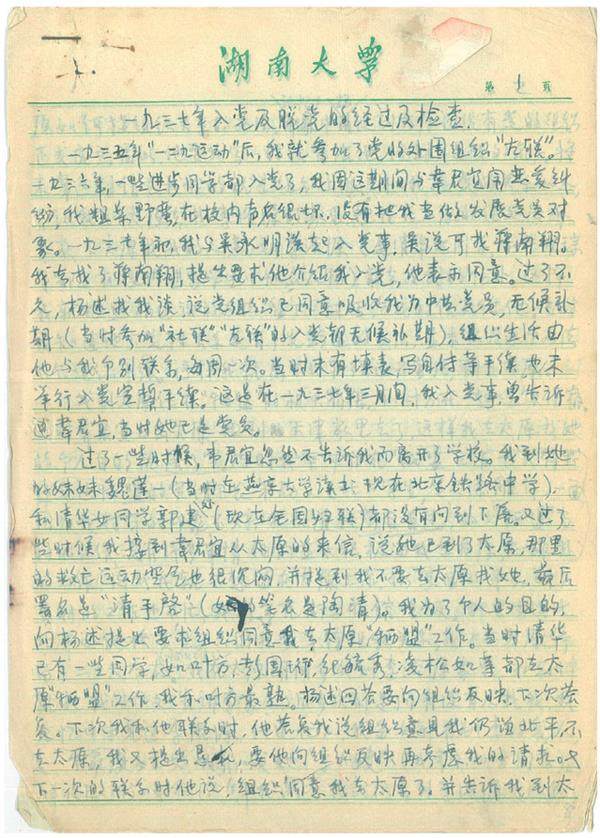 湖南大学
第 1 页
一九三七年入党及脱党的经过及检查.
一九三五年“一二九运动”后,我就参加了党的外围组织“左联”。
一九三六年,一些进步同学都入党了,我因这期间与韦君宜闹恋爱纠
纷,我粗柴野蛮,在校内声名很坏,没有把我当做发展党员对
象。一九三七年初,我与吴承明谈起入党事,吴说可找蒋南翔。
我去找了蒋南翔,提出要求他介绍我入党,他表示同意。过了不
久,杨述找我谈,说党组织已同意吸收我为中共党员,无候补
期(当时参加“社联”“左联”的入党都无候补期),组织生活由
他与我个别联系,每周一次。当时未有填表、写自传等手续,也未
举行入党宣誓手续。这是在一九三七年三月间,我入党事,曾告诉
过韦君宜,当时她已是党员。
过了一些时候,韦君宜忽然不告诉我而离开了学校。我到她
的妹妹魏莲一(当时在燕京大学读书,现在北京铁路中学).
和清华女同学郭建(现在全国妇联)都没有问到下落。又过了
些时候我接到韦君宜从太原的来信,说她已到了太原,那里
的救亡运动空气也很低闷,并提到我不要去太原找她,最后
署名是“请手启”(她的笔名是陶清)。我为了个人的目的,
向杨述提出要求组织同意我去太原“牺盟”工作。当时清华
已有一些同学,如叶方,彭国珩,纪毓秀,凌松如等都在太
原“牺盟”工作,我和叶方最熟。杨述回答要向组织反映,下次答
复。下次我和他联系时,他答复我说组织意见我仍留北平,不
去太原,我又提出意见,要他向组织反映再考虑我的请求。
下一次的联系时他说,组织同意我去太原了。并告诉我到太